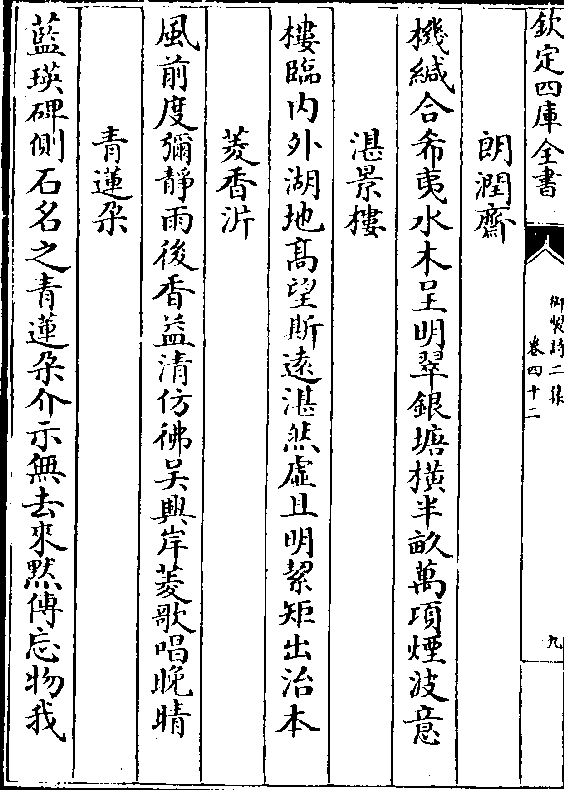 欽定四庫全書
御製詩二集
卷四十二
九
朗潤齋
機緘合希夷水木呈明翠銀塘橫半畝萬項煙波意
湛景樓
樓臨内外湖地髙望斯逺湛然虛且明絜矩出治本
菱香沜
風前度彌静雨後香益清仿彿吴興岸菱歌唱晚晴
青蓮朶
藍瑛碑側石名之青蓮朶介示無去來默傳忘物我